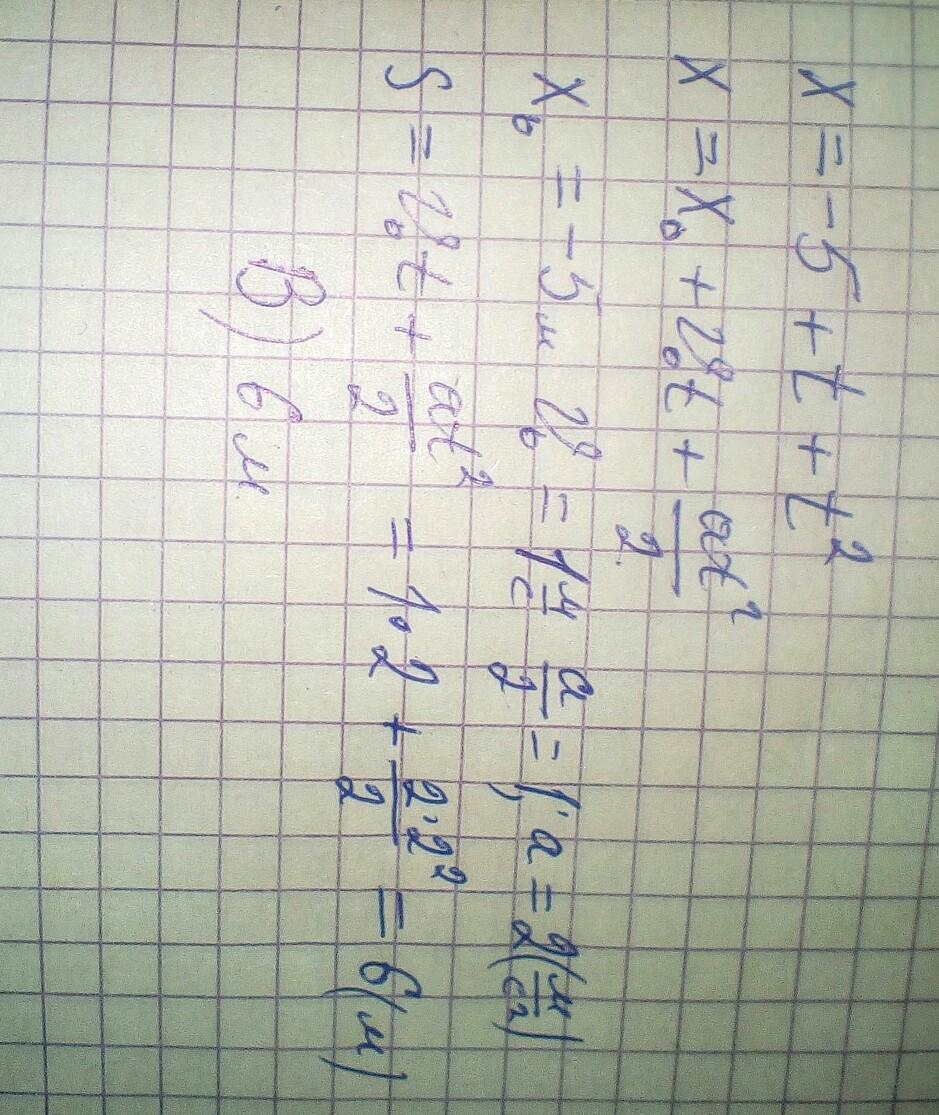 X = -5 + t + t²
X = X₀ + v₀t + at²/2
X₀ = -5м v₀ = 1 м/с a/2 = 1; a = 2(м/с²)
S = v₀t + at²/2 = 1·2 + 2·2²/2 = 6(м)
В) 6 м